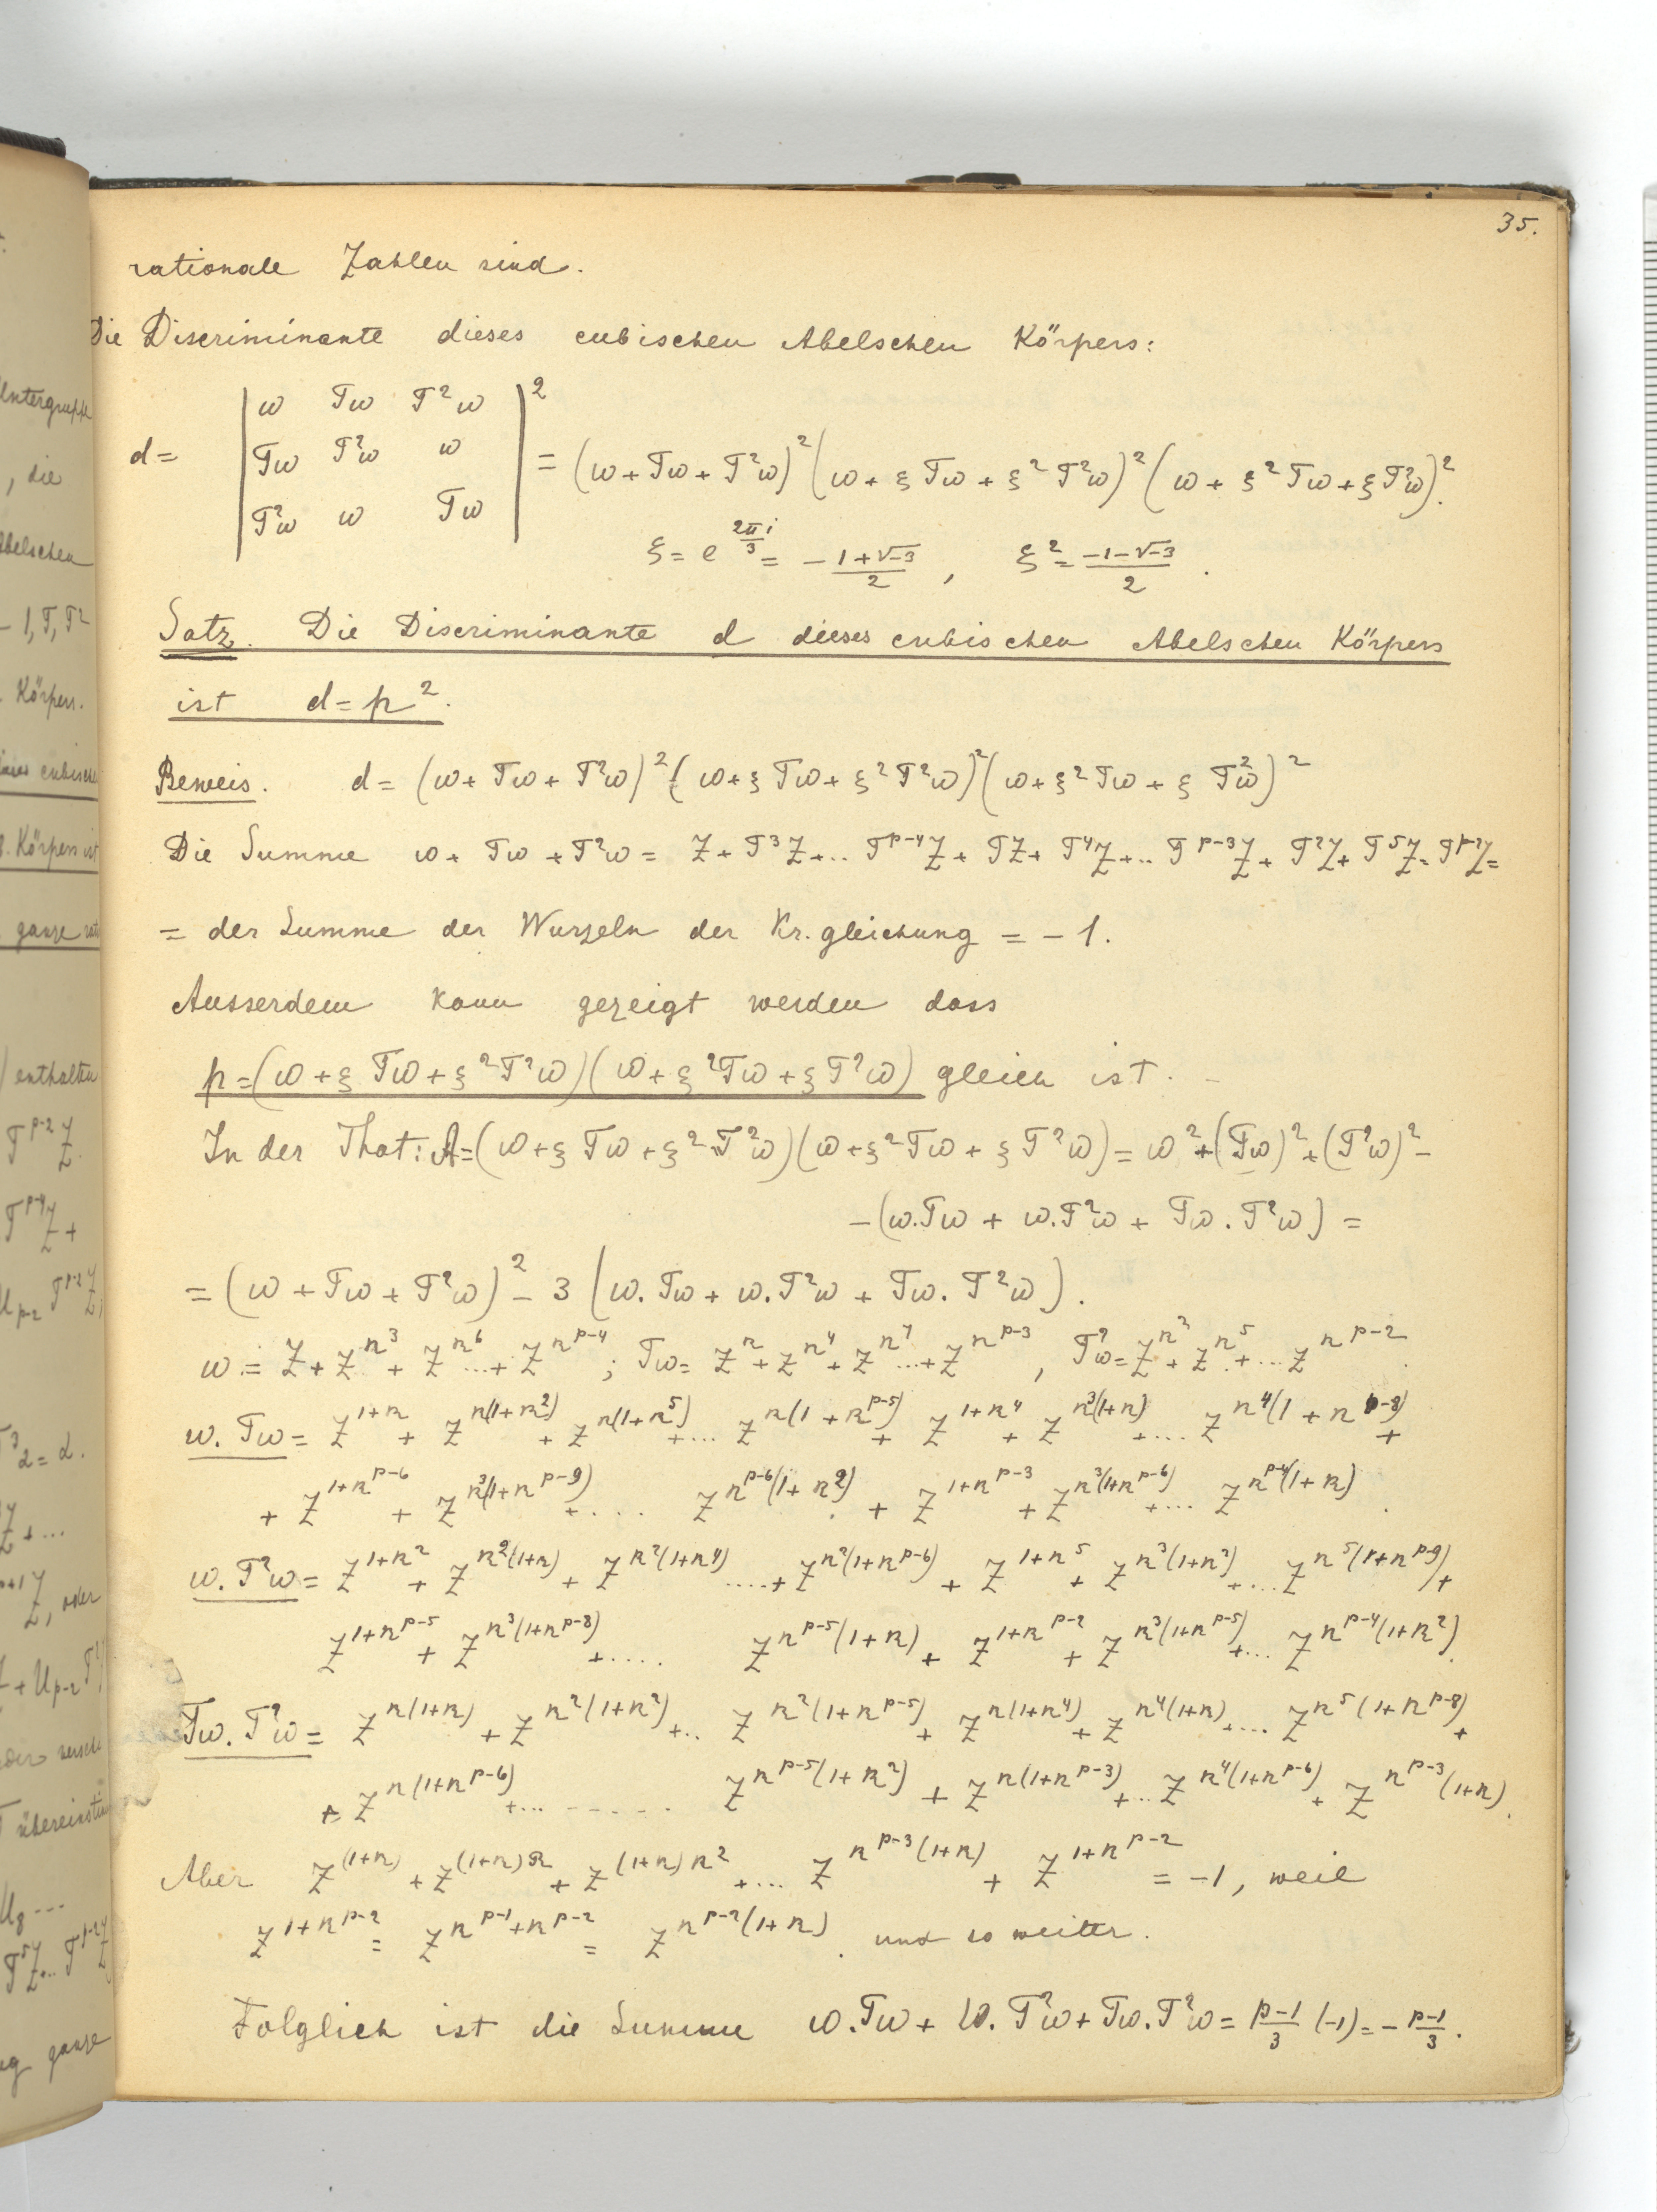 35.
rationale Zahlen sind.
Die Discriminante dieses cubischen Abelschen Körpers:
d = | ω Tω T²ω |²
| Tω T²ω ω | = (ω + Tω + T²ω)² (ω + ξ Tω + ξ² T²ω)² (ω + ξ² Tω + ξ T²ω)².
| T²ω ω Tω |
ξ = e^{2πi/3} = -1+√-3/2 , ξ² = -1-√-3/2 .
Satz. Die Discriminante d dieses cubischen Abelschen Körpers
ist d = p².
Beweis. d = (ω + Tω + T²ω)² (ω + ξ Tω + ξ² T²ω)² (ω + ξ² Tω + ξ T²ω)²
Die Summe ω + Tω + T²ω = Z + T³Z + .. T^{p-4}Z + TZ + T⁴Z + .. T^{p-3}Z + T²Z + T⁵Z .. T^{p-2}Z =
= der Summe der Wurzeln der Kr. gleichung = -1.
Ausserdem kann gezeigt werden dass
p = (ω + ξ Tω + ξ² T²ω)(ω + ξ² Tω + ξ T²ω) gleich ist. -
In der That: A = (ω + ξ Tω + ξ² T²ω)(ω + ξ² Tω + ξ T²ω) = ω² + (Tω)² + (T²ω)² -
-(ω.Tω + ω.T²ω + Tω.T²ω) =
= (ω + Tω + T²ω)² - 3 (ω.Tω + ω.T²ω + Tω.T²ω).
ω = Z + Z^{r³} + Z^{r⁶} ... + Z^{r^{p-4}} ; Tω = Z^r + Z^{r⁴} + Z^{r⁷} ... + Z^{r^{p-3}} , T²ω = Z^{r²} + Z^{r⁵} + ... Z^{r^{p-2}}.
ω.Tω = Z^{1+r} + Z^{r(1+r²)} + Z^{r(1+r⁵)} + ... Z^{r(1+r^{p-5})} + Z^{1+r⁴} + Z^{r³(1+r)} + .... Z^{r⁴(1+r^{p-8})} +
+ Z^{1+r^{p-6}} + Z^{r³(1+r^{p-9})} + .... Z^{r^{p-6}(1+r²)} + Z^{1+r^{p-3}} + Z^{r³(1+r^{p-6})} + ... Z^{r^{p-4}(1+r)} .
ω.T²ω = Z^{1+r²} + Z^{r²(1+r)} + Z^{r²(1+r⁴)} .... + Z^{r²(1+r^{p-6})} + Z^{1+r⁵} + Z^{r³(1+r²)} + ... Z^{r⁵(1+r^{p-9})} +
Z^{1+r^{p-5}} + Z^{r³(1+r^{p-8})} + .... Z^{r^{p-5}(1+r)} + Z^{1+r^{p-2}} + Z^{r³(1+r^{p-5})} + ... Z^{r^{p-4}(1+r²)}.
Tω.T²ω = Z^{r(1+r)} + Z^{r²(1+r²)} + .. Z^{r²(1+r^{p-5})} + Z^{r(1+r⁴)} + Z^{r⁴(1+r)} + .... Z^{r⁵(1+r^{p-8})} +
+ Z^{r(1+r^{p-6})} + ... ...... Z^{r^{p-5}(1+r²)} + Z^{r(1+r^{p-3})} + .. Z^{r⁴(1+r^{p-6})} + Z^{r^{p-3}(1+r)}.
Aber Z^{(1+r)} + Z^{(1+r)r} + Z^{(1+r)r²} + ... Z^{r^{p-3}(1+r)} + Z^{1+r^{p-2}} = -1, weil
Z^{1+r^{p-2}} = Z^{r^{p-1}+r^{p-2}} = Z^{r^{p-2}(1+r)} . und so weiter.
Folglich ist die Summe ω.Tω + ω.T²ω + Tω.T²ω = p-1/3 (-1) = - p-1/3 .